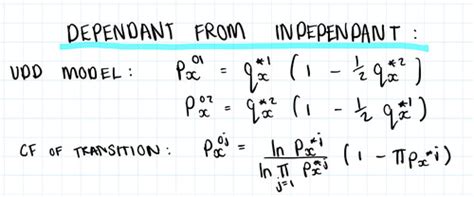 DEPENDANT FROM INDEPENDANT :
UDD MODEL : p_x^{01} = q_x^{*1} (1 - ½ q_x^{*2})
p_x^{02} = q_x^{*2} (1 - ½ q_x^{*1})
CF OF TRANSITION : p_x^{0j} = \frac{ln p_x^{*j}}{ln π_{j=1} p_x^{*j}} (1 - πp_x^{*j})